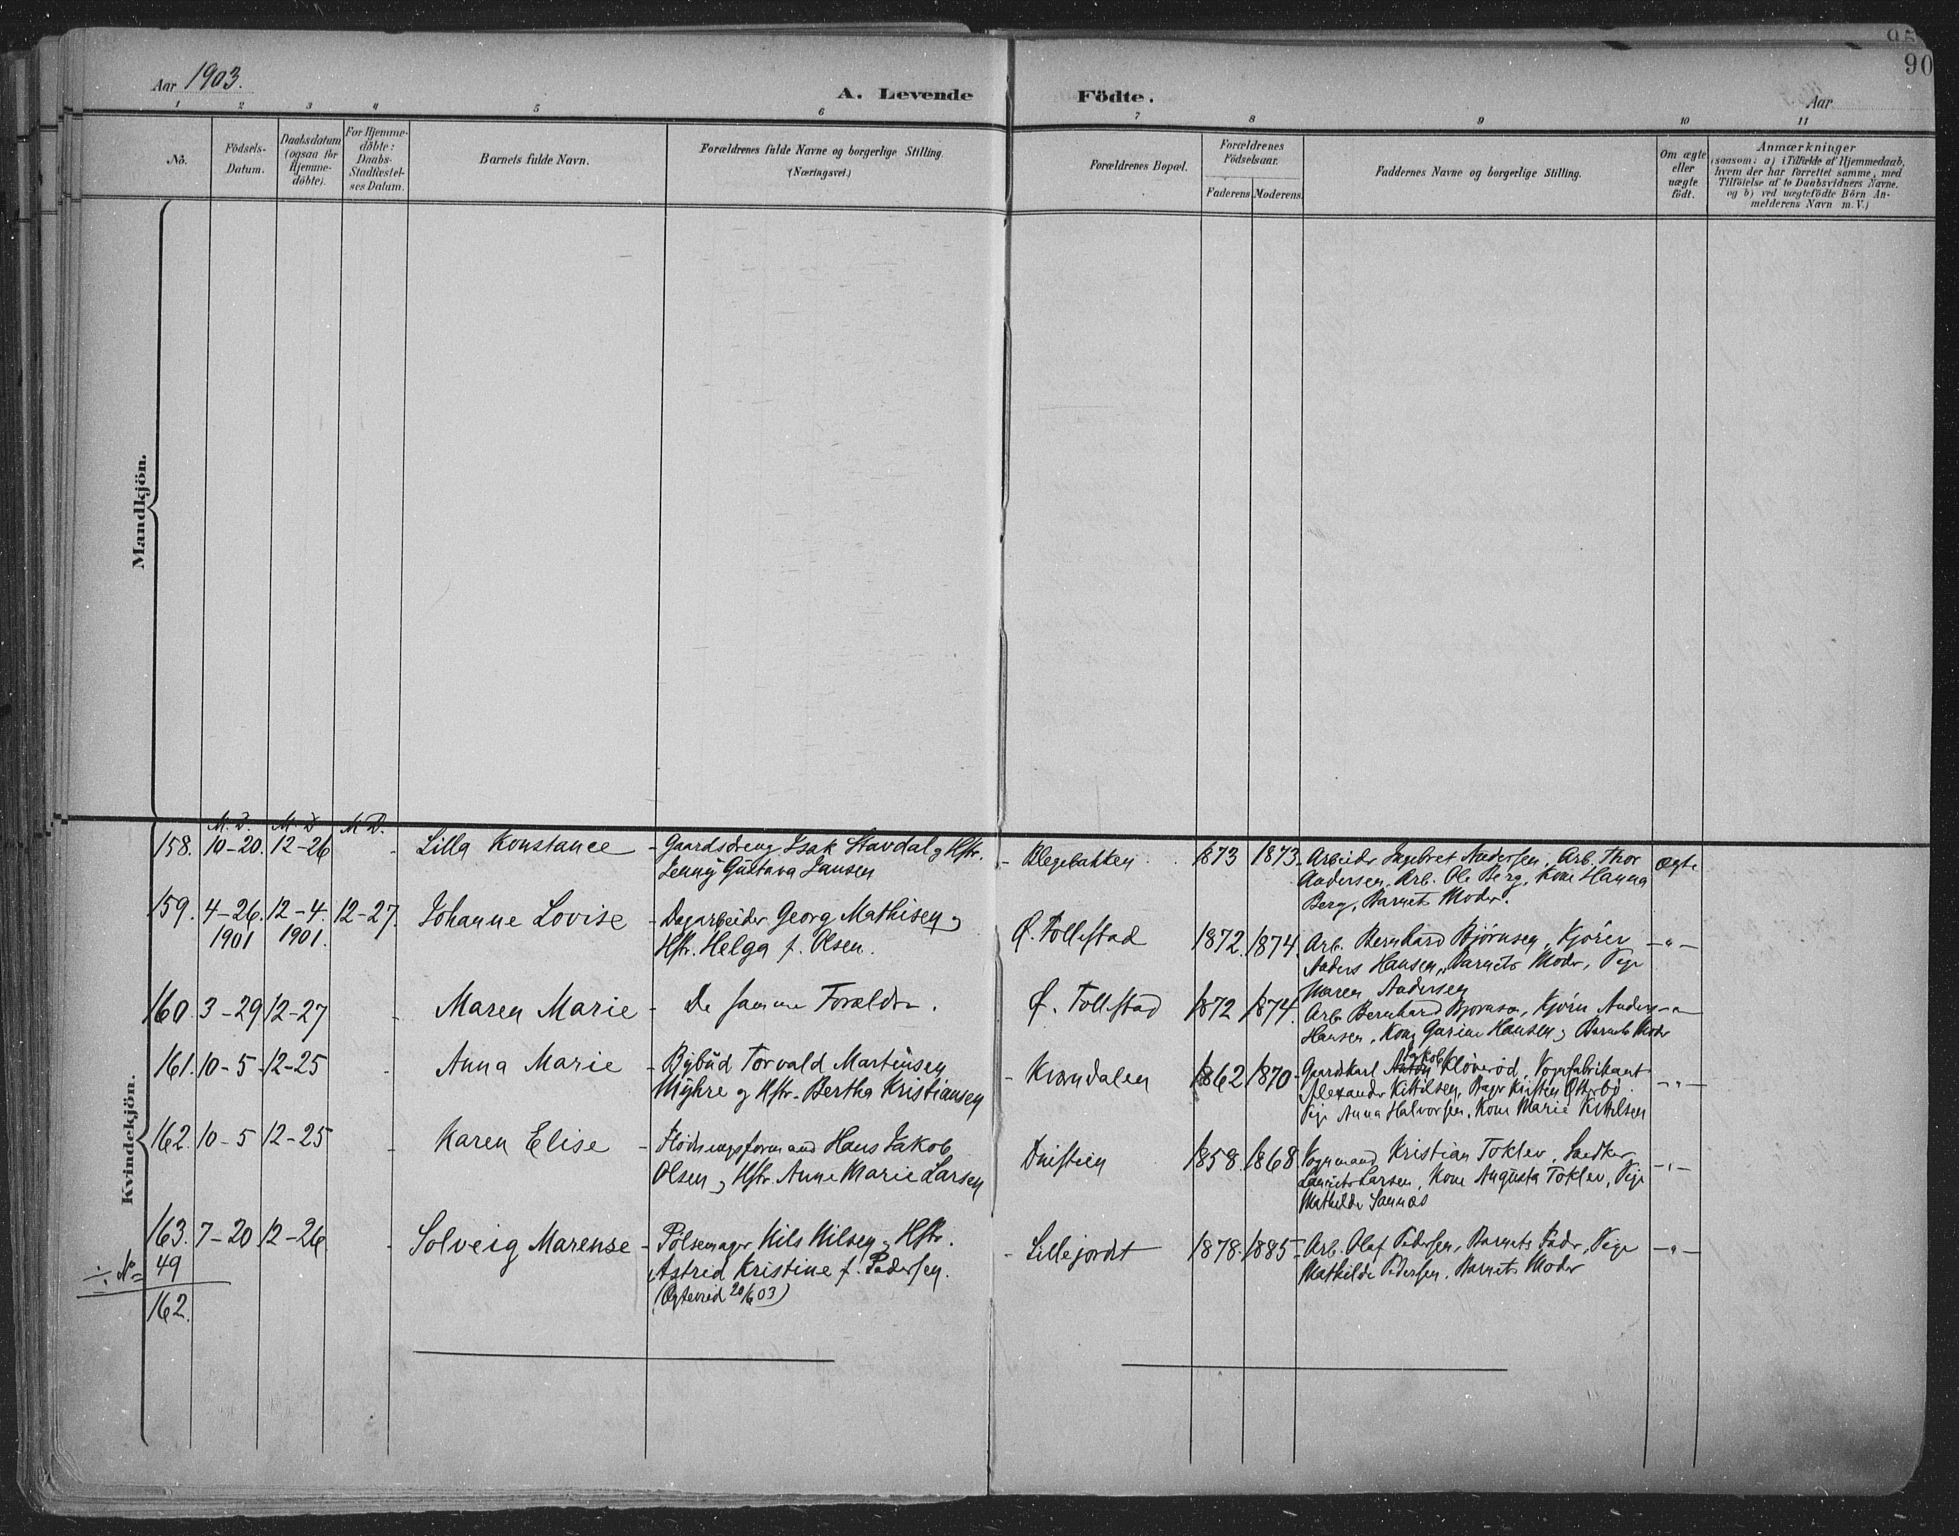 95
90
Aar 1903.
A. Levende Födte.
Aar
1 2 3 4 5 6 7 8 9 10 11
No.
Födsels-
Datum.
Daabsdatum
(ogsaa for
Hjemme-
döbte).
For Hjemme-
döbte:
Daabs-
Stadfæstel-
ses Datum.
Barnets fulde Navn.
Forældrenes fulde Navne og borgerlige Stilling.
(Næringsvei.)
Forældrenes Bopæl.
Forældrenes
Födselsaar.
Faderens Moderens.
Faddernes Navne og borgerlige Stilling.
Om ægte
eller
uægte
födt.
Anmærkninger
(saasom: a) i Tilfælde af Hjemmedaab,
hvem der har forrettet samme, med
Tilföielse af to Daabsvidners Navne.
og b) ved uægtefödte Börn An-
melderens Navn m. V.)
Mandkjön.
Kvindekjön.
M. D. M. D M D.
158. 10-20. 12-26 Lilla Konstance - Gaardsdreng Isak Stavdal og Hstr.
Jenny Gustava Jansen
- Klegebakken 1873 1873. Arbeidr Ingebret Andersen, Arb. Thor
Andersen, Arb. Ole Berg, Kone Hanna
Berg, Barnets Moder.
Ægte
159. 4-26. 12-4. 12-27. Johanne Lovise - Dagarbeider Georg Mathisen og
1901 1901. Hstr. Helga f. Olsen.
Ø. Tollestad 1872. 1874. Arb. Bernhard Bjørnsen, Kjörer
Anders Hansen, Barnets Moder, Pige
Maren Andersen
-"-
160. 3-29 12-27 Maren Marie - De samme Foræld
Ø. Tollestad 1872 1874. Arb Bernhard Bjørnsen, Kjörer Anders
Hansen, Kone Gurine Hansen, Barnets Moder
-"-
161. 10-5. 12-25 Anna Marie - Bybud Torvald Martinsen
Myhre og Hstr. Bertha Kristiansen
- Kvarndalen 1862 1870 - Gaardskarl Jakob Kløverød, Vognfabrikant
Alexander Kittilsen, Bager Kristen Otterbö
Pige Anna Halvorsen, Kone Marie Kittilsen
-"-
162. 10-5 12-25 Karen Elise - Flödningsformand Hans Jakob
Olsen og Hstr. Anne Marie Larsen
1858. 1868. Vognmand Kristian Toklev,
Laurits Larsen, Kone Augusta Toklev, Pige
Mathilde Sannæs
-"-
163. 7-20. 12-26 Solveig Marense - Pölsemager Nils Nilsen og Hstr.
Astrid Kristine f. Pedersen.
(Ægtevied 20/6 03)
- Lillejordet 1878. 1885 - Arb. Olaf Pedersen, Barnets Fader, Pige
Mathilde Pedersen, Barnets Moder
-"-
÷ No = 49
162.